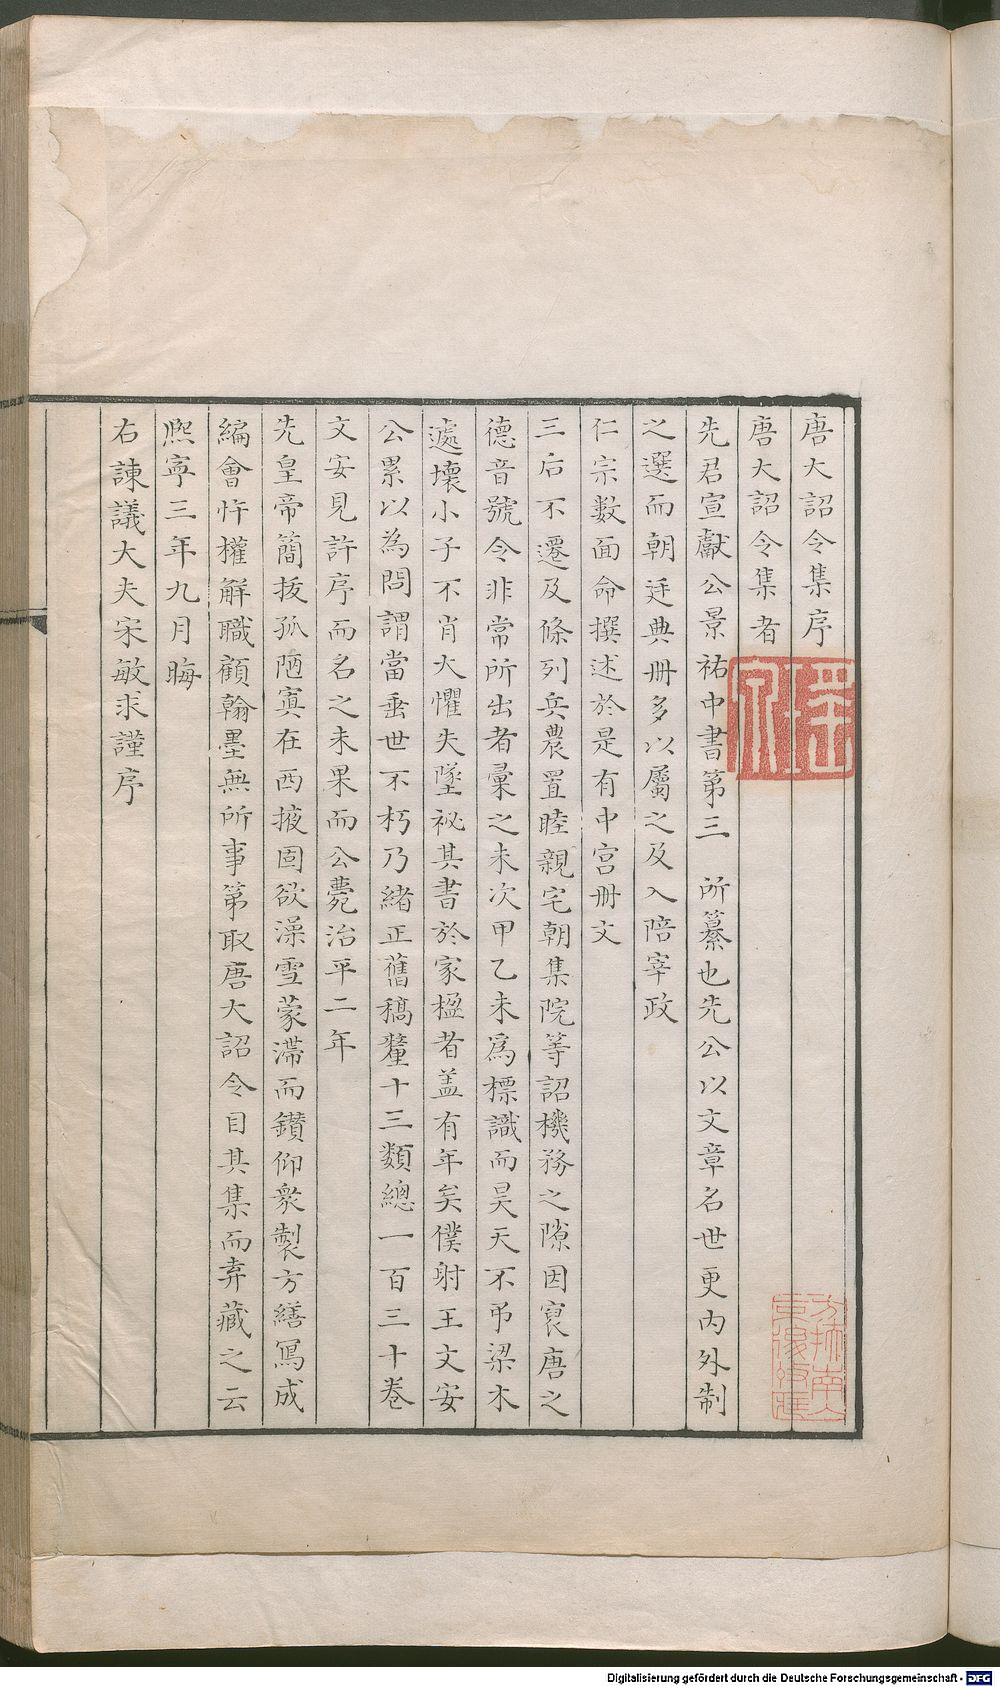 唐大詔令集序
唐大詔令集者
先君宣獻公景祐中書第三 所纂也先公以文章名世更内外制
之選而朝廷典冊多以屬之及入陪宰政
仁宗數面命撰述於是有中宫冊文
三后不遷及條列兵農置睦親宅朝集院等詔機務之隙因裒唐之
德音號令非常所出者彙之未次甲乙未爲標識而昊天不弔梁木
遽壞小子不肖大懼失墜祕其書於家楹者盖有年矣僕射王文安
公累以為問謂當垂世不朽乃緒正舊稿釐十三類總一百三十卷
文安見許序而名之未果而公薨治平二年
先皇帝簡拔孤陋寘在西掖固欲澡雪蒙滯而鑽仰衆製方繕寫成
編會忤權解職顧翰墨無所事第取唐大詔令目其集而弆藏之云
熈寜三年九月晦
右諫議大夫宋敏求謹序
Digitalisierung gefördert durch die Deutsche Forschungsgemeinschaft - DFG